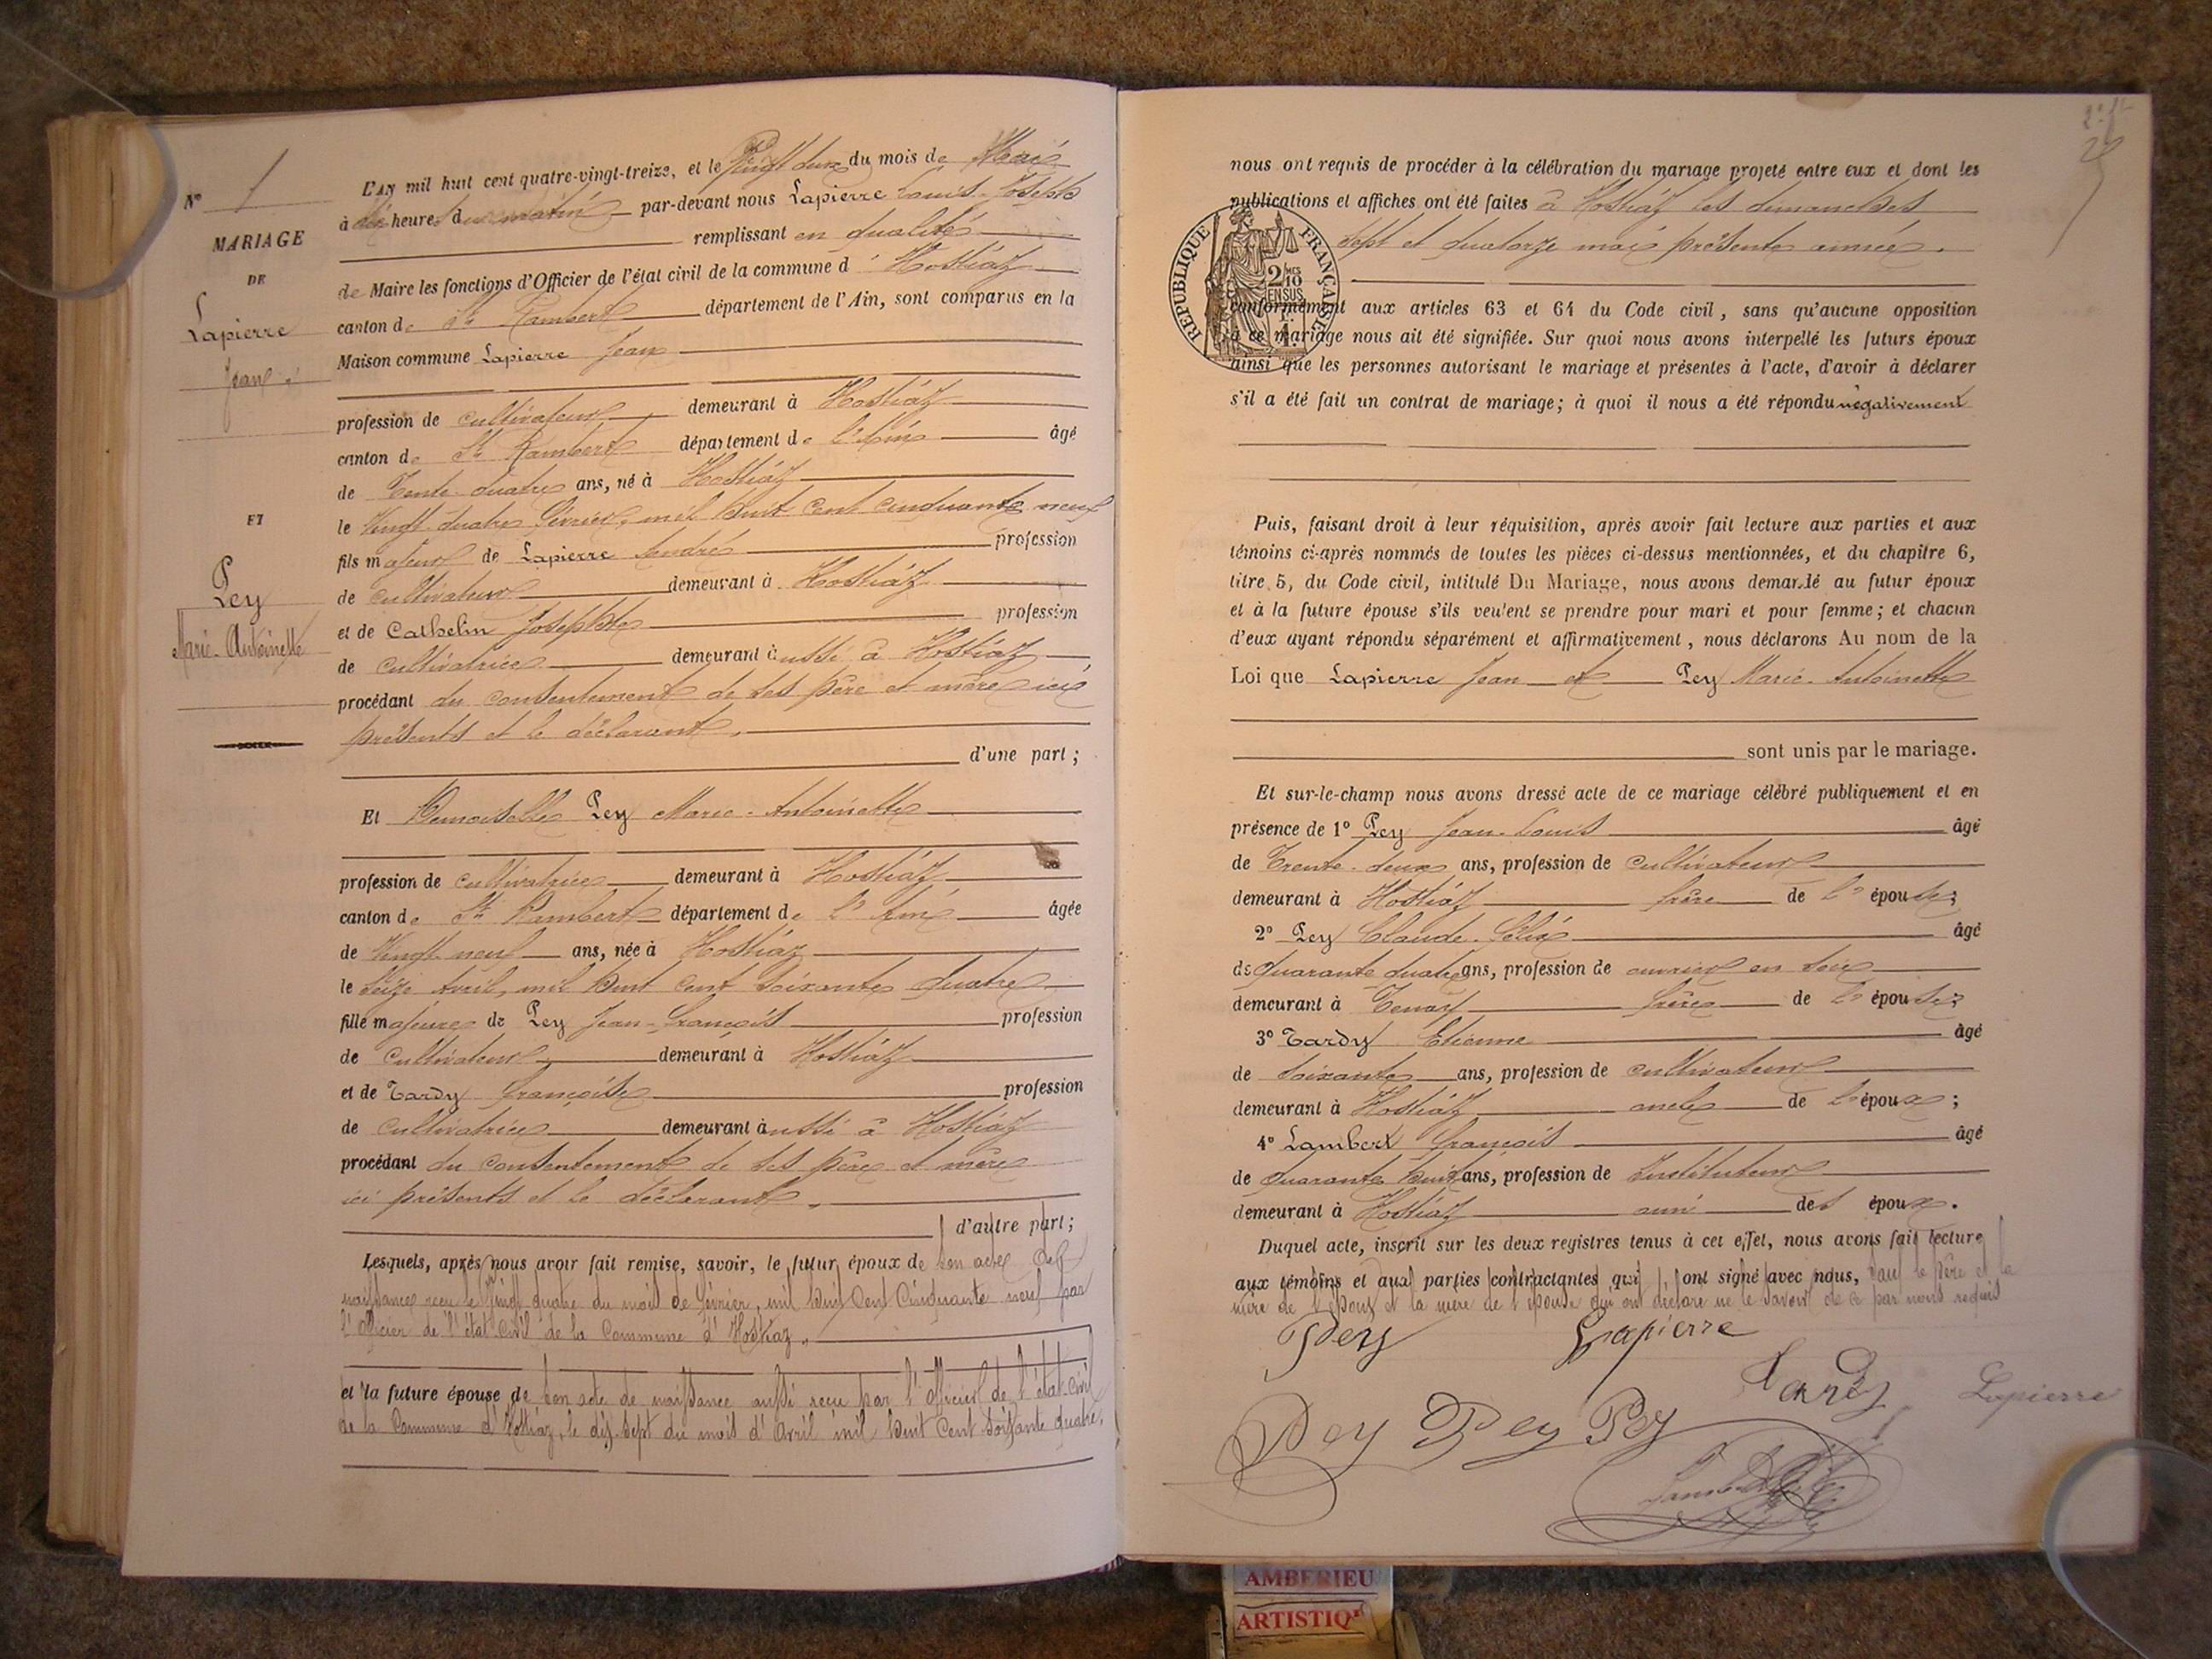 N° 1
MARIAGE
DE
Lapierre
Jean
ET
Pey
Marie-Antoinette
L'AN mil huit cent quatre-vingt-treize, et le Vingt deux du mois de Mai
à dix heures du matin par-devant nous Lapierre Louis-Joseph
remplissant en qualité
de Maire les fonctions d'Officier de l'état civil de la commune d' Hostiaz
canton de St Rambert département de l'Ain, sont comparus en la
Maison commune Lapierre Jean
profession de cultivateur demeurant à Hostiaz
canton de St Rambert département de l'Ain âgé
de Trente quatre ans, né à Hostiaz
le Vingt quatre Février, mil huit cent cinquante neuf
fils majeur de Lapierre André profession
de cultivateur demeurant à Hostiaz
et de Cathelin Josephte profession
de cultivatrice demeurant aussi à Hostiaz
procédant du consentement de ses père et mère ici
présents et le déclarant.
d'une part ;
Et Demoiselle Pey Marie-Antoinette
profession de cultivatrice demeurant à Hostiaz
canton de St Rambert département de l'Ain âgée
de Vingt neuf ans, née à Hostiaz
le Seize Avril, mil huit cent soixante quatre
fille majeure de Pey Jean-François profession
de Cultivateur demeurant à Hostiaz
et de Tardy Françoise profession
de Cultivatrice demeurant aussi à Hostiaz
procédant du consentement de ses père et mère
ici présents et le déclarant.
d'autre part ;
Lesquels, après nous avoir fait remise, savoir, le futur époux de son acte de
naissance reçu le Vingt quatre du mois de Février, mil huit cent cinquante neuf par
l'Officier de l'état civil de la Commune d'Hostiaz.
et la future épouse de son acte de naissance aussi reçu par l'Officier de l'état-civil
de la Commune d'Hostiaz, le dix sept du mois d'Avril mil huit cent soixante quatre.
nous ont requis de procéder à la célébration du mariage projeté entre eux et dont les
publications et affiches ont été faites à Hostiaz les dimanches
sept et quatorze mai présente année.
RÉPUBLIQUE FRANÇAISE
2/10 EN SUS
conformément aux articles 63 et 64 du Code civil, sans qu'aucune opposition
à ce mariage nous ait été signifiée. Sur quoi nous avons interpellé les futurs époux
ainsi que les personnes autorisant le mariage et présentes à l'acte, d'avoir à déclarer
s'il a été fait un contrat de mariage ; à quoi il nous a été répondu négativement
Puis, faisant droit à leur réquisition, après avoir fait lecture aux parties et aux
témoins ci-après nommés de toutes les pièces ci-dessus mentionnées, et du chapitre 6,
titre 5, du Code civil, intitulé Du Mariage, nous avons demandé au futur époux
et à la future épouse s'ils veulent se prendre pour mari et pour femme ; et chacun
d'eux ayant répondu séparément et affirmativement, nous déclarons Au nom de la
Loi que Lapierre Jean et Pey Marie-Antoinette
sont unis par le mariage.
Et sur-le-champ nous avons dressé acte de ce mariage célébré publiquement et en
présence de 1° Pey Jean-Louis âgé
de Trente-deux ans, profession de cultivateur
demeurant à Hostiaz frère de l'épouse ;
2° Pey Claude-Félix âgé
de quarante quatre ans, profession de ouvrier en soie
demeurant à Tenay frère de l'épouse ;
3° Tardy Etienne âgé
de soixante ans, profession de cultivateur
demeurant à Hostiaz oncle de l'époux ;
4° Lambert François âgé
de quarante huit ans, profession de Instituteur
demeurant à Hostiaz ami des époux.
Duquel acte, inscrit sur les deux registres tenus à cet effet, nous avons fait lecture
aux témoins et aux parties contractantes qui ont signé avec nous, sauf le père et la
mère de l'époux et la mère de l'épouse qui ont déclaré ne le savoir de ce par nous requis
Pey Lapierre
Tardy Lapierre
Pey Pey Pey
Lambert
AMBERIEU
ARTISTIQ